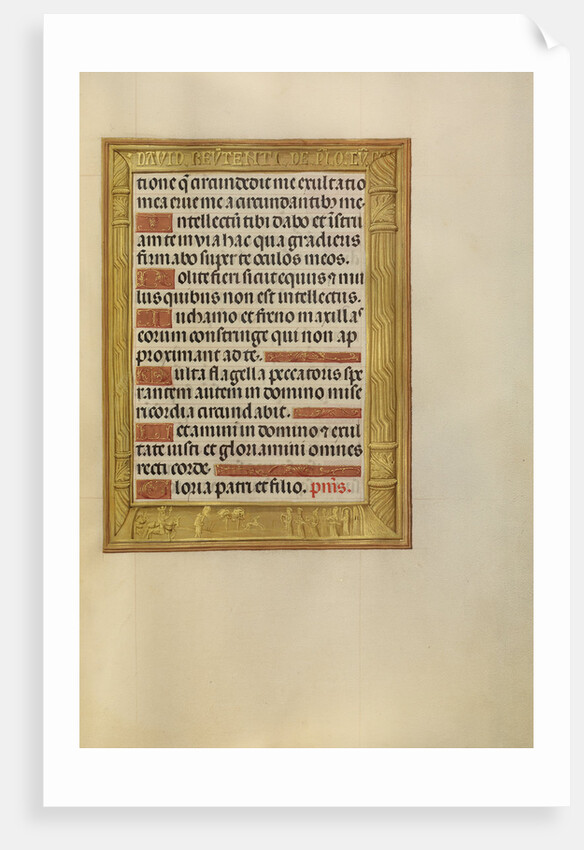 DAVID
tione q̄ circundedit me exultatio
mea erue me a circundantibꝰ me.
Intellectū tibi dabo et ĩstru
am te in via hac qua gradieris
firmabo super te oculos meos.
Nolite fieri sicut equus ⁊ mu
lus quibus non est intellectus.
In chamo et freno maxillas
eorum constringe qui non ap
proximant ad te.
Multa flagella peccatoris spe
rantem autem in domino mise
ricordia circundabit.
Letamini in domino ⁊ exul
tate iusti et gloriamini omnes
recti corde.
Gloria patri et filio. pm̄s.